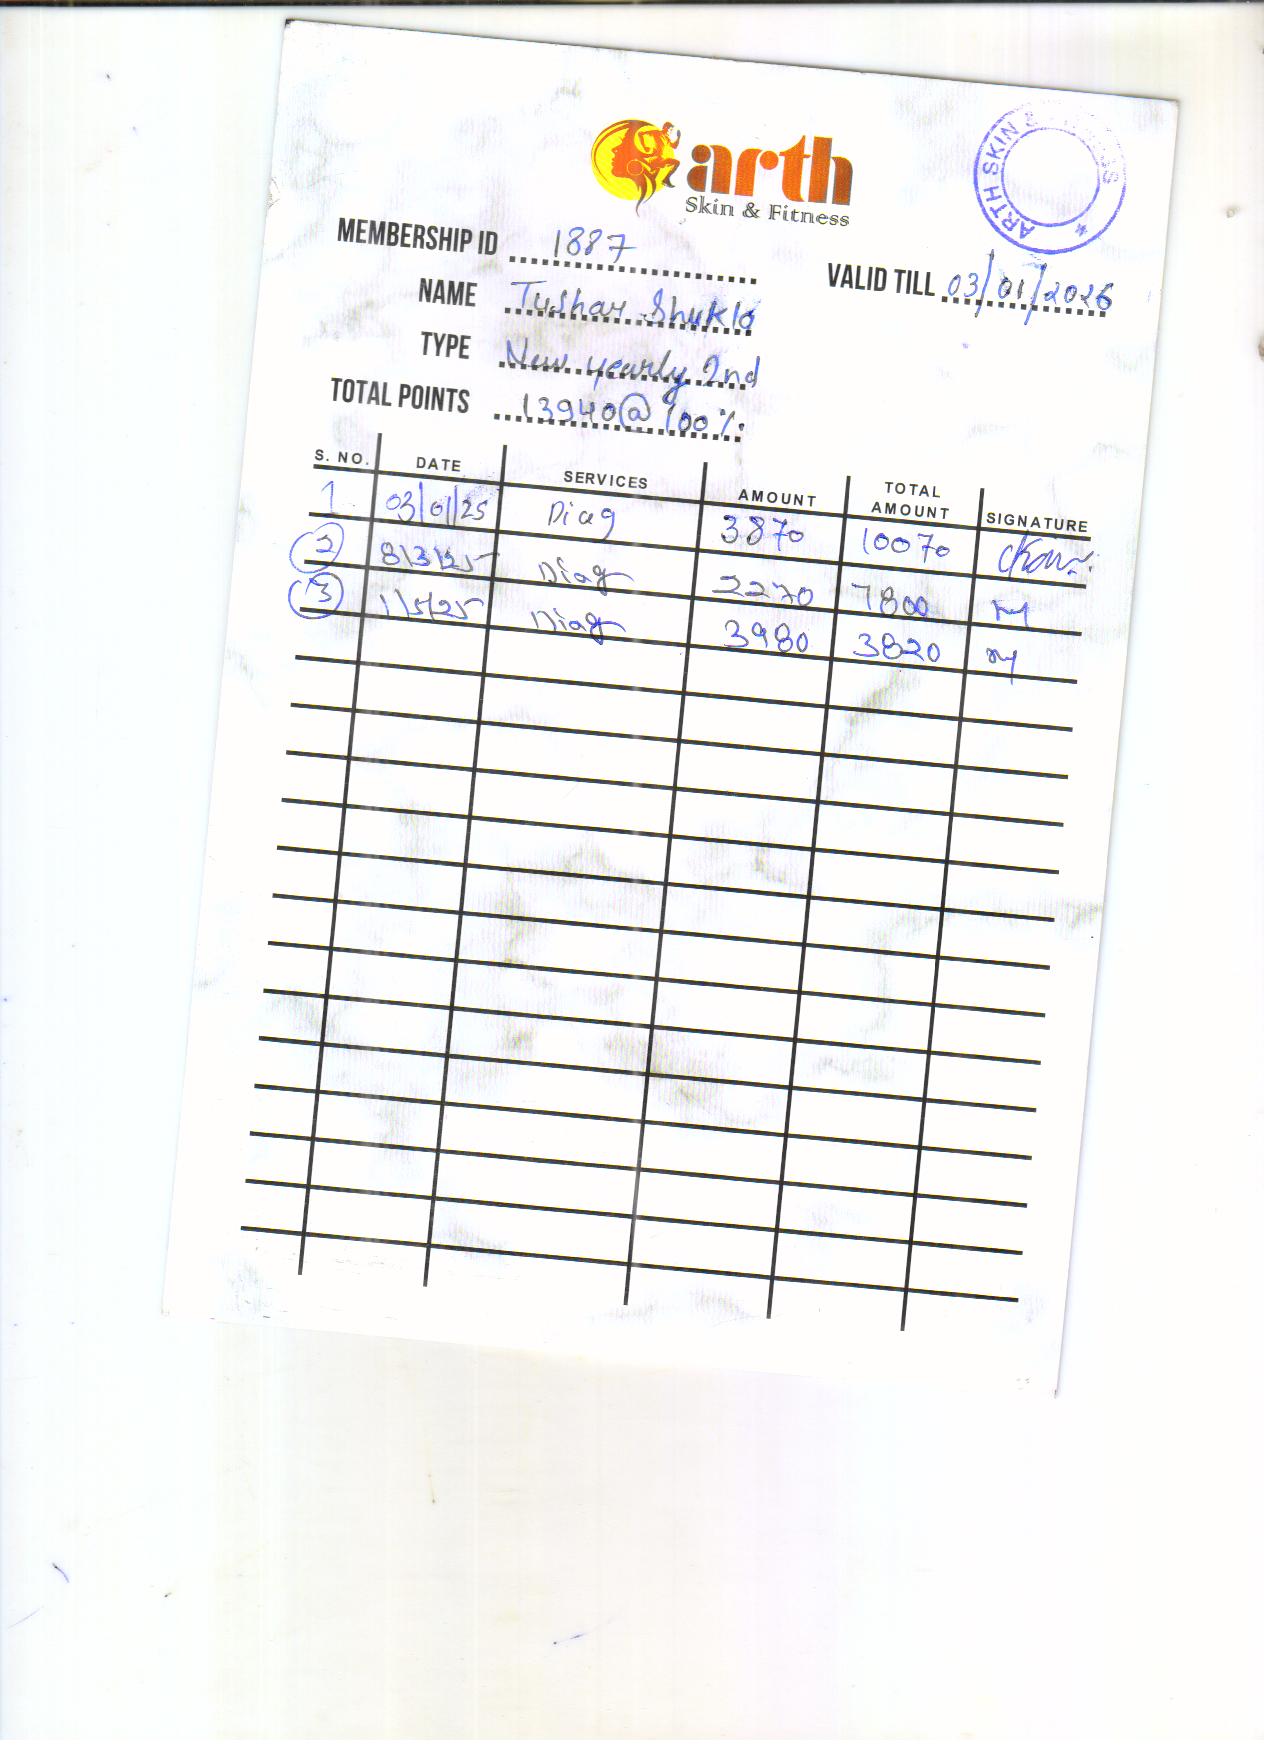 arth
Skin & Fitness
ARTH SKIN & FITNESS
MEMBERSHIP ID 1887
VALID TILL 03/01/2026
NAME Tushar Shukla
TYPE New yearly 2nd
TOTAL POINTS 13940@100%
S. NO. DATE SERVICES AMOUNT TOTAL AMOUNT SIGNATURE
1 03/01/25 Diag 3870 10070
2 8/3/25 Diag 2270 7800
3 1/5/25 Diag 3980 3820